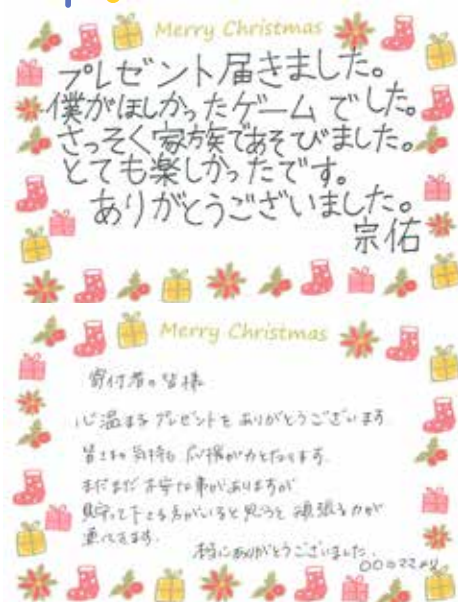 Merry Christmas
プレゼント届きました。
僕がほしかったゲームでした。
さっそく家族であそびました。
とても楽しかったです。
ありがとうございました。
宗佑
Merry Christmas
寄付者の皆様
心温まるプレゼントをありがとうございます
皆さまの気持ち 応援が力となります。
まだまだ不安な事がありますが
見守って下さる方がいると思うと頑張る力が
湧いてきます。
本当にありがとうございました。
〇〇のママより